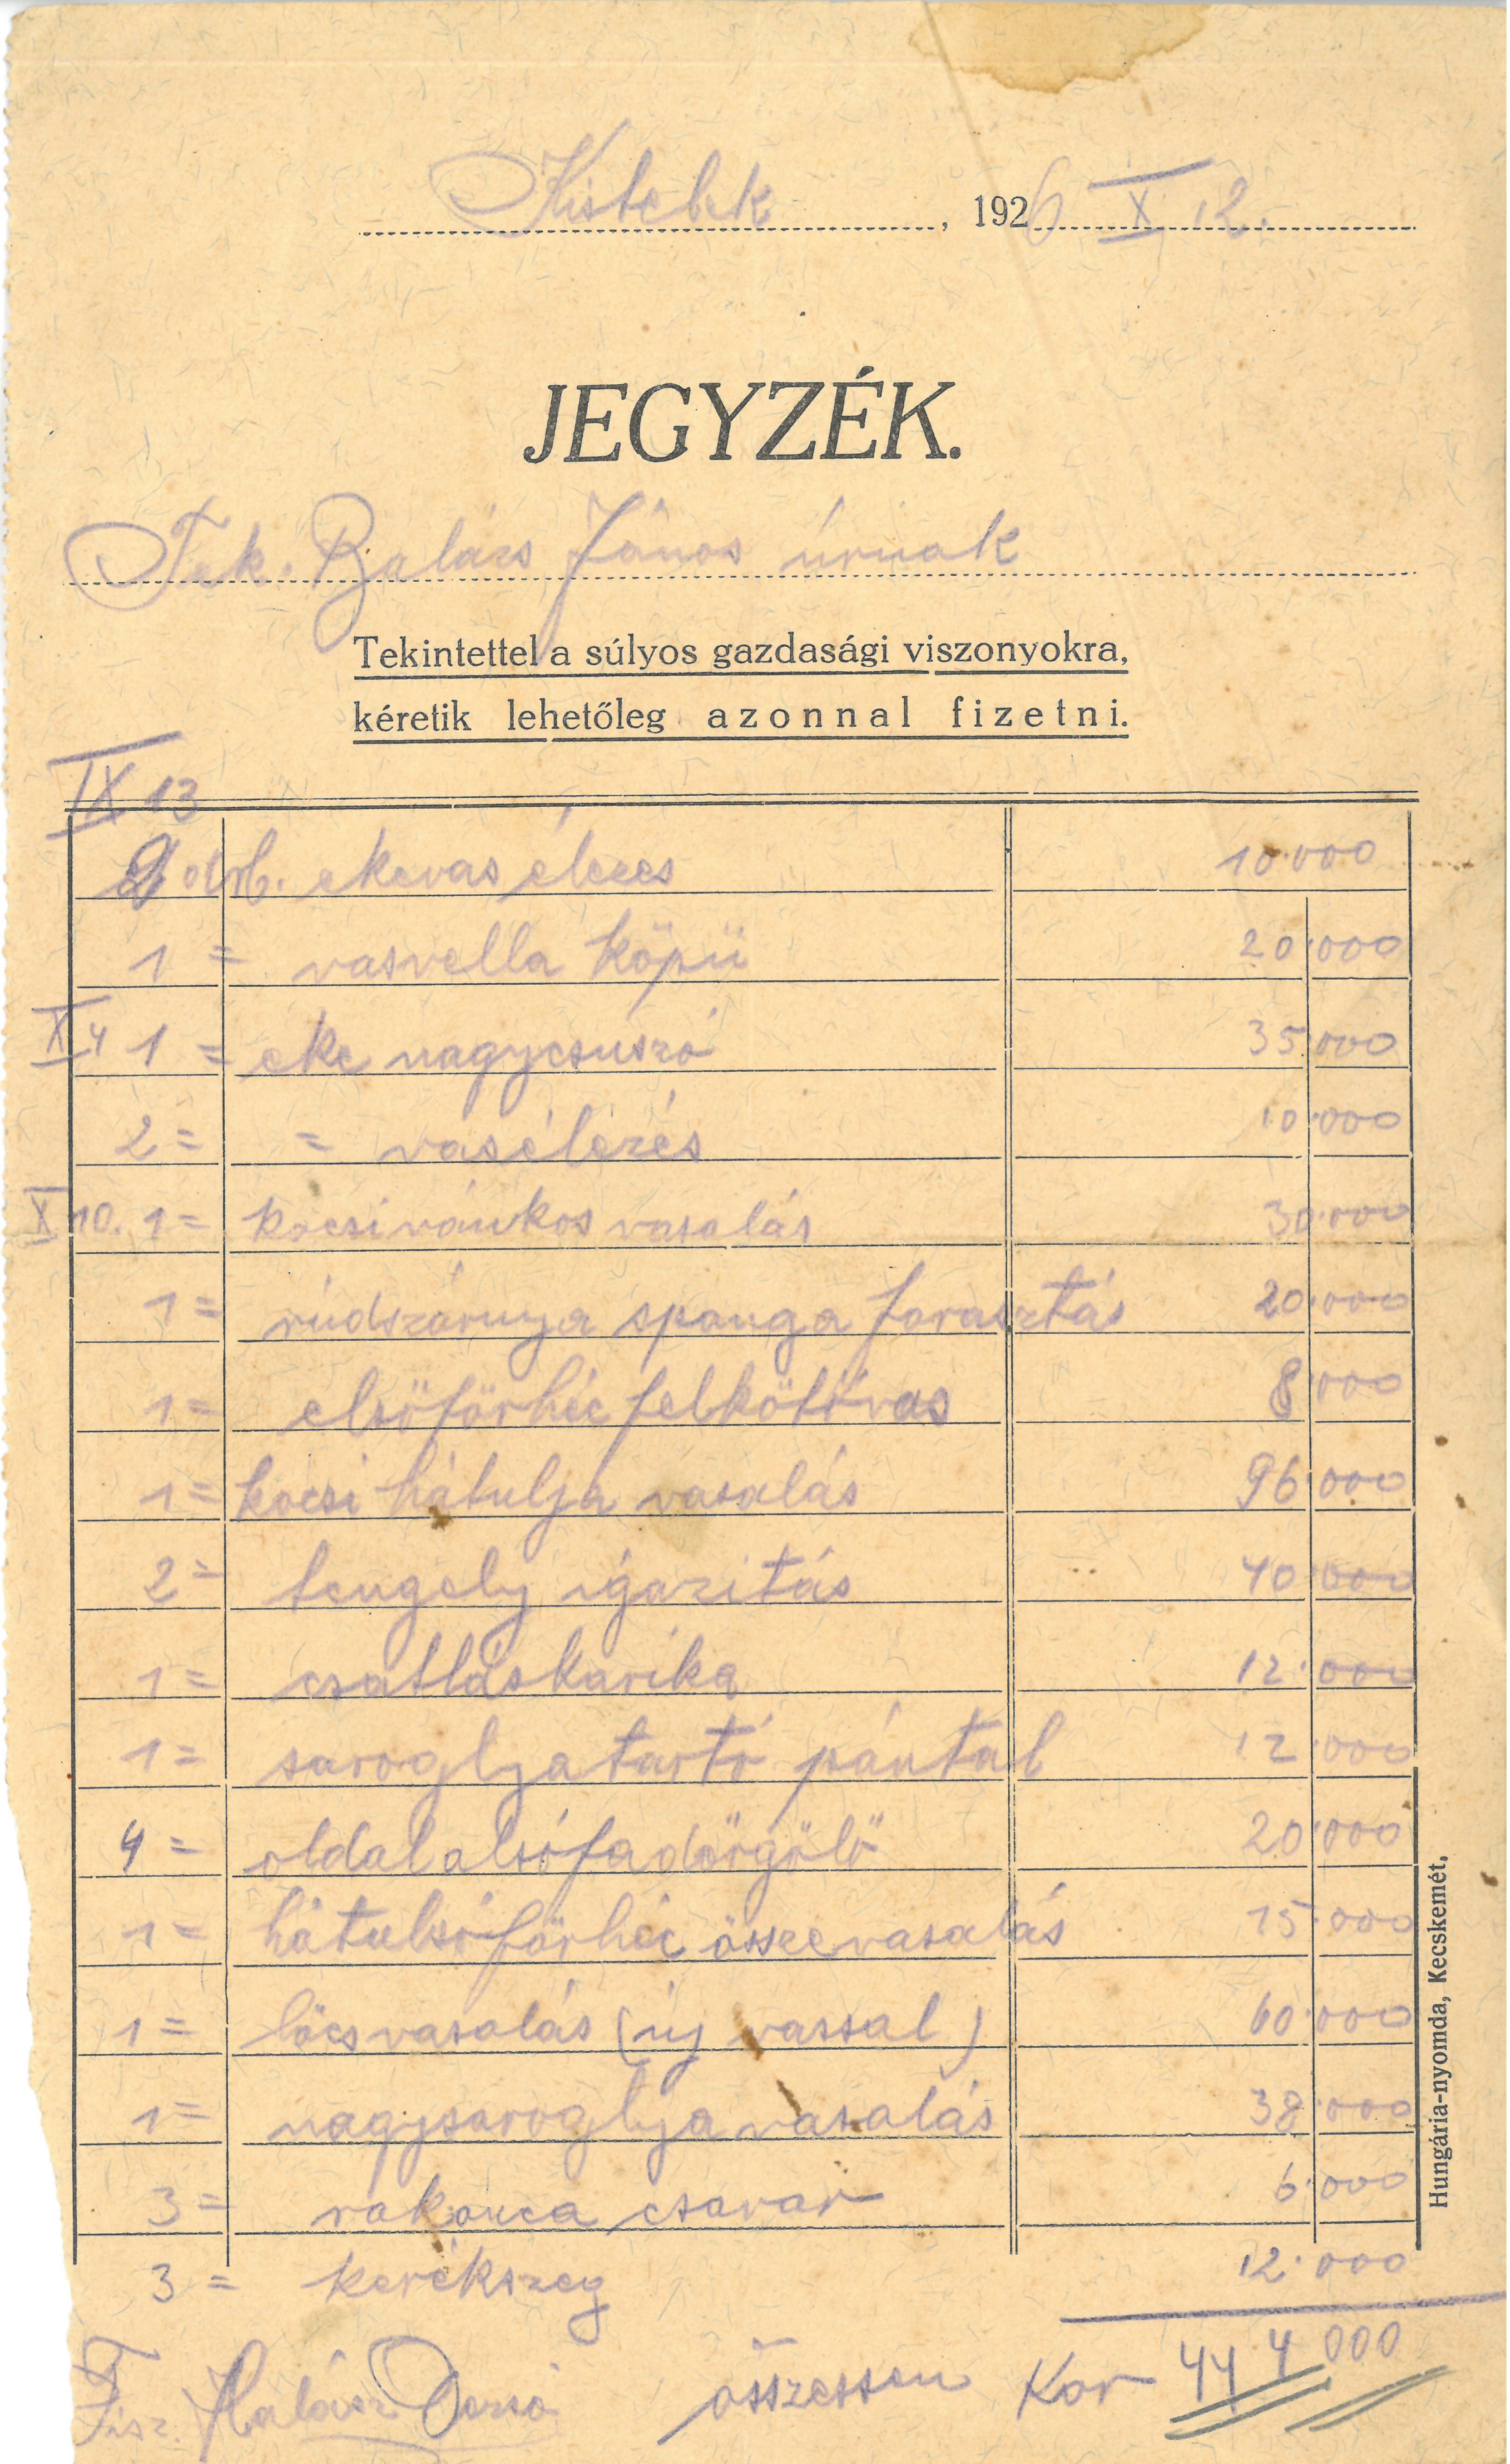 Kistelek, 1926 X 12.
JEGYZÉK.
Tek. Balázs János úrnak
Tekintettel a súlyos gazdasági viszonyokra,
kéretik lehetőleg azonnal fizetni.
IX 13
2 drb. ekevas élezes 10.000
1 = vasvella köpü 20.000
X 4 1 = eke nagycsuszó 35.000
2 = = vasélezés 10.000
X 10. 1 = kocsi vánkos vasalás 30.000
1 = rúdszárnya spanga forasztás 20.000
1 = elsőförhéc felkötővas 8.000
1 = kocsi hátulja vasalás 96.000
2 = tengely igazitás 40.000
1 = csatláskarika 12.000
1 = saroglyatartó pántal 12.000
4 = oldal alsófa dörgölő 20.000
1 = hátulsó förhéc összevasalás 15.000
1 = lőcsvasalás (új vassal) 60.000
1 = nagysaroglya vasalás 38.000
3 = rakonca csavar 6.000
3 = kerékszeg 12.000
Fisz. Halász Dezső összessen Kor 444 000
Hungária-nyomda, Kecskemét.